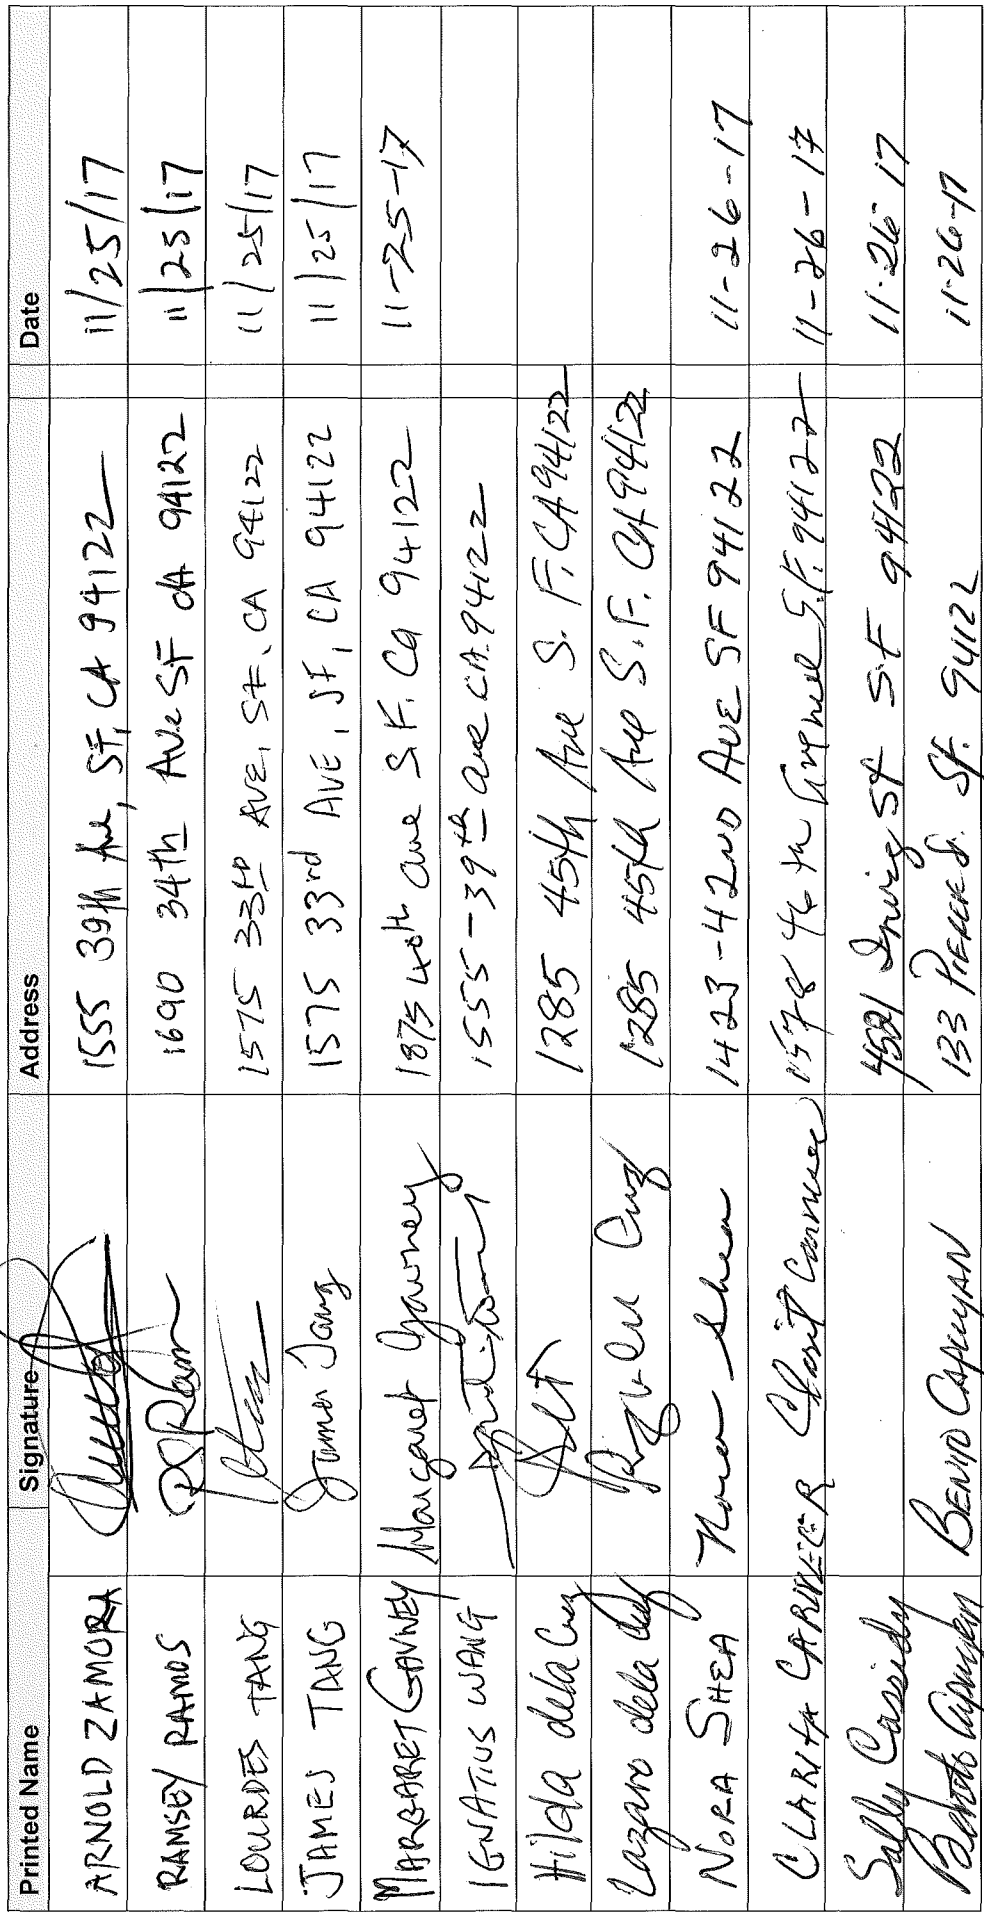 Printed Name Signature Address Date
ARNOLD ZAMORA 1555 39th Ave, SF, CA 94122 11/25/17
RAMSEY RAMOS 1690 34th Ave SF CA 94122 11/25/17
LOURDES TANG 1575 33RD AVE, SF, CA 94122 11/25/17
JAMES TANG James Tang 1575 33rd AVE, SF, CA 94122 11/25/17
MARGARET GAVNEY Margaret Gavney 1875 40th ave S.F. Ca 94122 11-25-17
IGNATIUS WANG 1555-39th ave CA. 94122
Hilda dela Cruz 1285 45th Ave S.F, CA 94122
Lazaro dela Cruz 1285 45th Ave S.F. CA 94122
NORA SHEA Nora Shea 1423-42ND AVE SF 94122 11-26-17
CLARITA 1578 46th S.F. 94122 11-26-17
Sally Cassidy 4521 Irving St SF 94122 11-26-17
BENITO CAPUYAN 133 SF. 94122 11-26-17